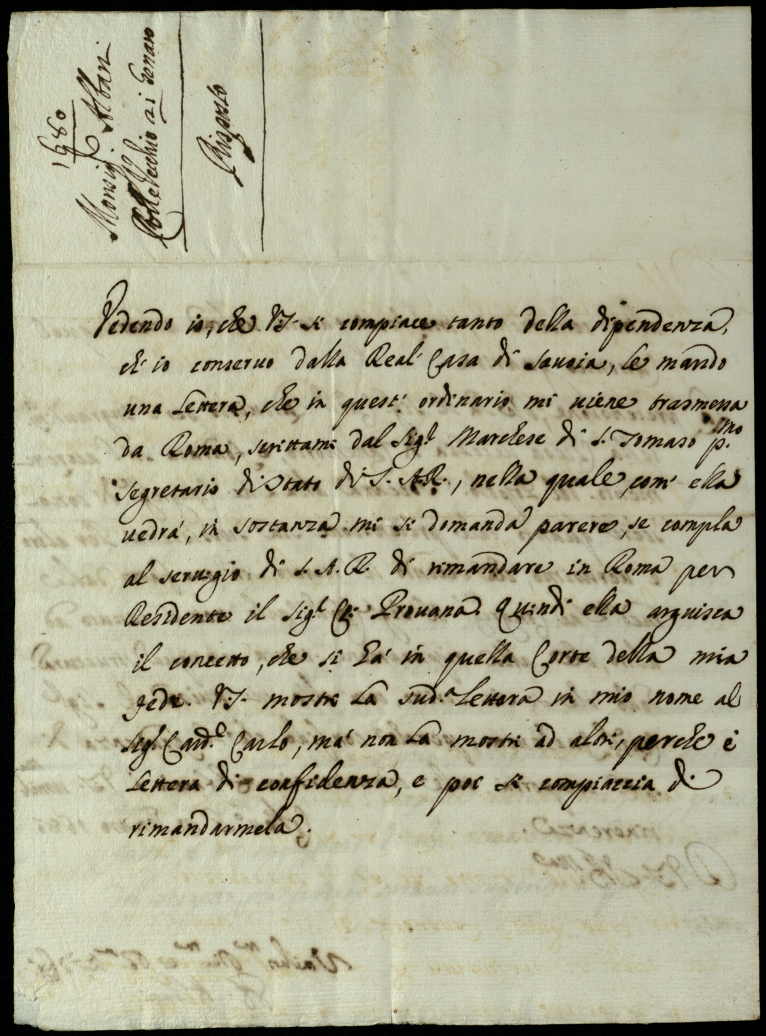 1680
Monsig. Albani
Corte Vecchio 21 Genaro
Risposto
Vedendo io, che V.S. si compiace tanto della dipendenza,
ch' io conservo dalla Real' Casa di Savoia, le mando
una Lettera, che in quest' ordinario mi viene trasmessa
da Roma, scrittami dal Sig.r Marchese di S. Tomaso p.mo
Segretario di Stato di S. A.R., nella quale, com' ella
vedrà, in sostanza mi si domanda parere, se compla
al servigio di S. A. R. di rimandare in Roma per
Residente il Sig.r Provana. Quindi ella arguisca
il concetto, che si hà in quella Corte della mia
fede. V.S. mostri la sud.a Lettera in mio nome al
Sig.r Card.l Carlo, mà non la mostri ad altri, perche è
Lettera di confidenza, e poi si compiaccia di
rimandarmela.